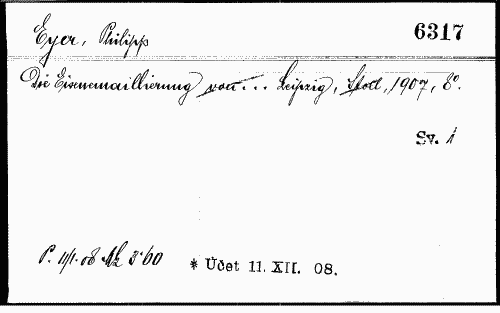 Eyer, Philipp
6317
Die Eisenemaillierung von... Leipzig, 1907, 8°.
Sv. 1
P. 11/1.08 Mk 3·60
* Účet 11. XII. 08.